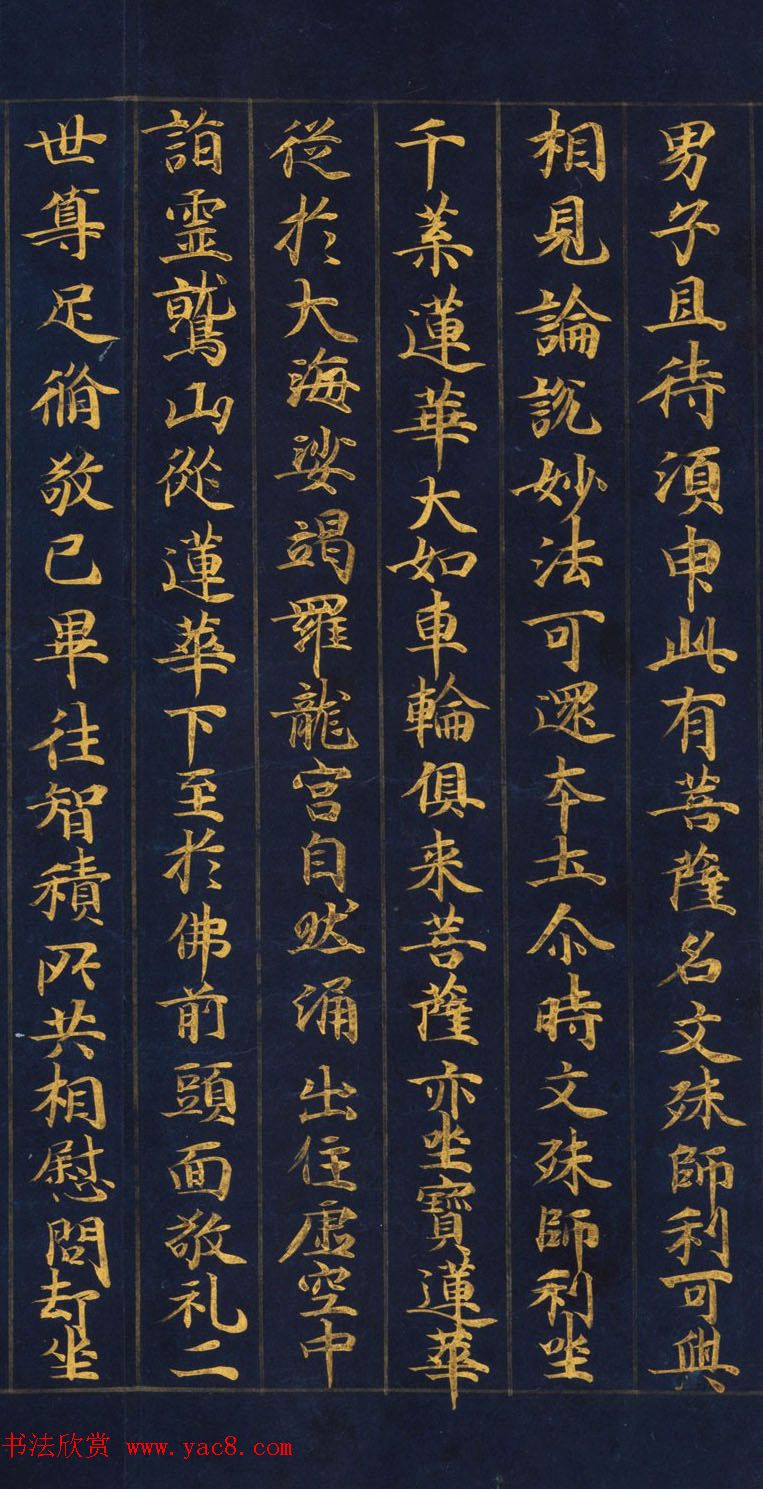 男子且待須申此有菩薩名文殊師利可與
相見論説妙法可還本土尒時文殊師利坐
千葉蓮華大如車輪俱来菩薩亦坐寶蓮華
從於大海娑竭羅龍宮自然涌出住虛空中
詣靈鷲山從蓮華下至於佛前頭面敬礼二
世尊足脩敬已畢往智積所共相慰問却坐
书法欣赏 www.yac8.com